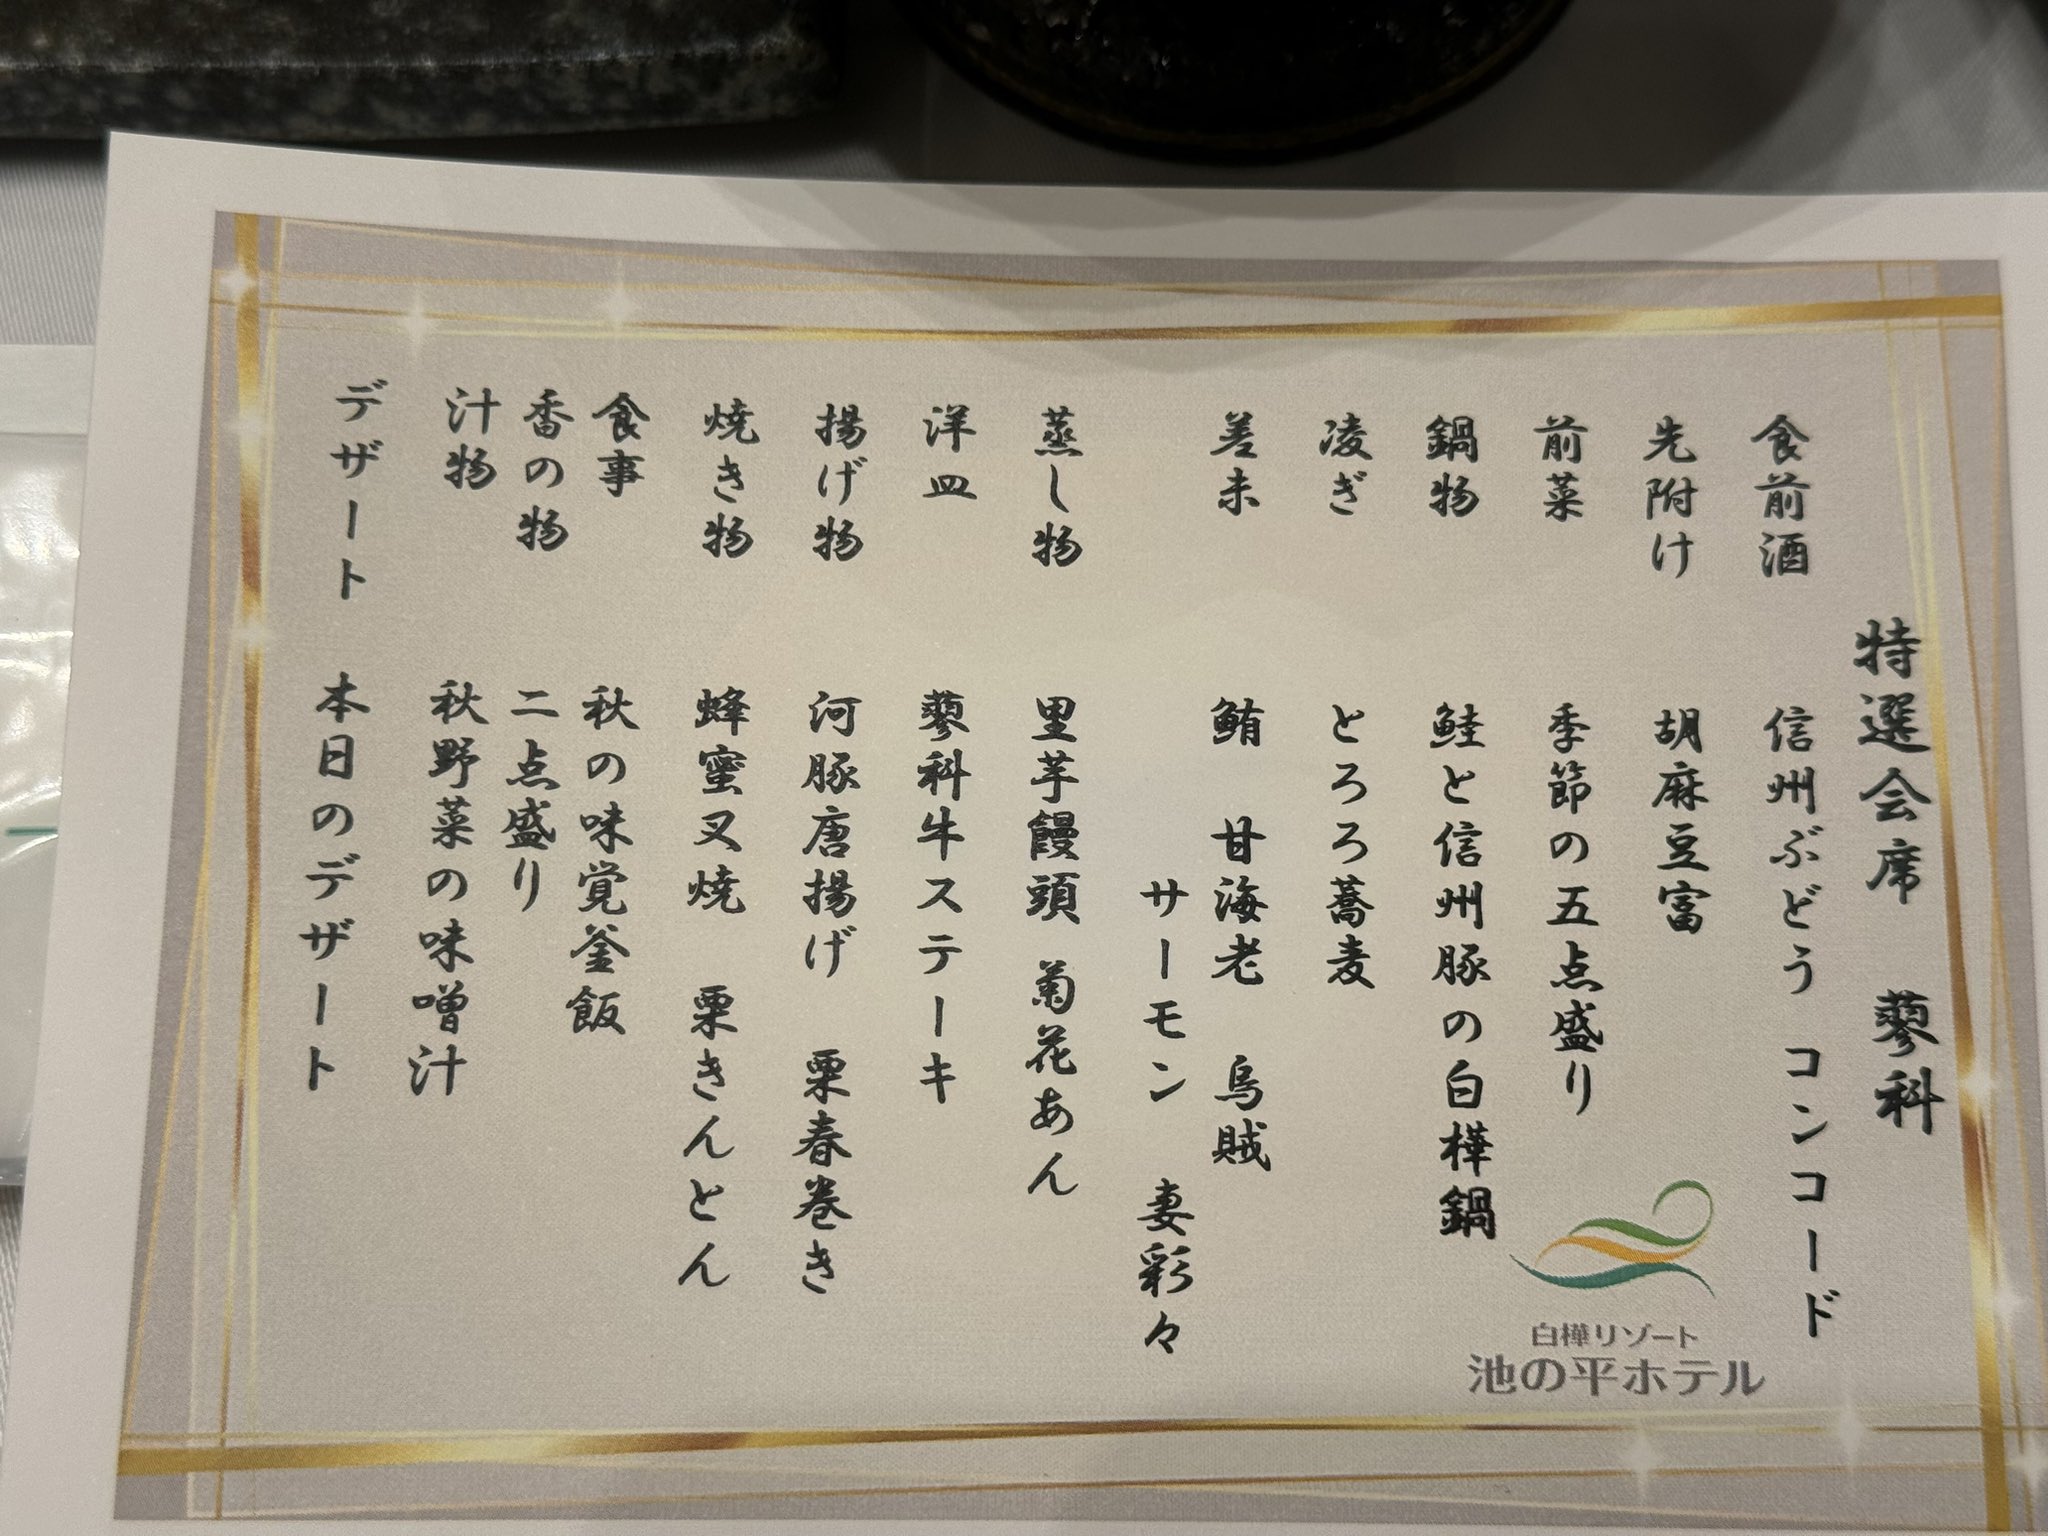 特選会席 蓼科
食前酒 信州ぶどう コンコード
先附け 胡麻豆富
前菜 季節の五点盛り
鍋物 鮭と信州豚の白樺鍋
凌ぎ とろろ蕎麦
差未 鮪 甘海老 烏賊
サーモン 妻彩々
蒸し物 里芋饅頭 菊花あん
洋皿 蓼科牛ステーキ
揚げ物 河豚唐揚げ 栗春巻き
焼き物 蜂蜜叉焼 栗きんとん
食事 秋の味覚釜飯
香の物 二点盛り
汁物 秋野菜の味噌汁
デザート 本日のデザート
白樺リゾート
池の平ホテル